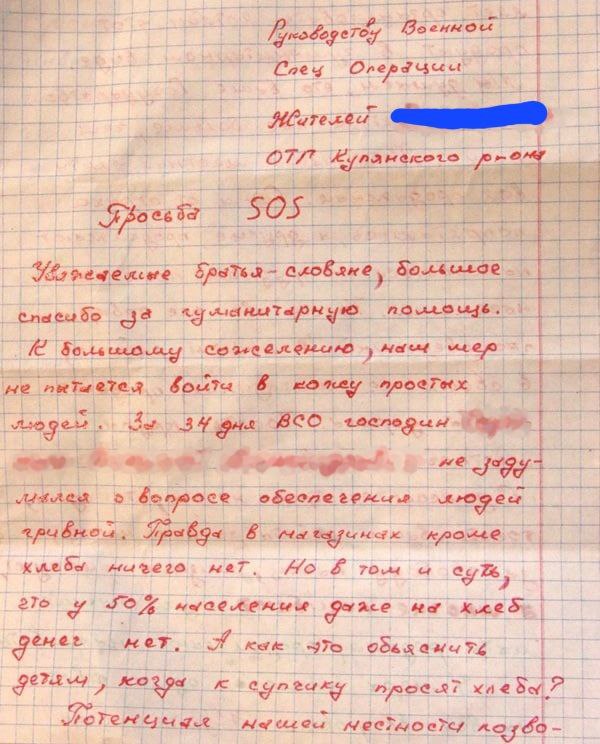 Руководству Военной
Спец Операции
Жителей
ОТГ Купянского р-она
Просьба SOS
Уважаемые братья-словяне, большое
спасибо за гуманитарную помощь.
К большому сожелению, наш мер
не пытается войти в кожу простых
людей. За 34 дня ВСО господин
не заду-
мался о вопросе обеспечения людей
гривной. Правда в магазинах кроме
хлеба ничего нет. Но в том и суть,
что у 50% населения даже на хлеб
денег нет. А как это обьяснить
детям, когда к супчику просят хлеба?
Потенциал нашей местности позво-